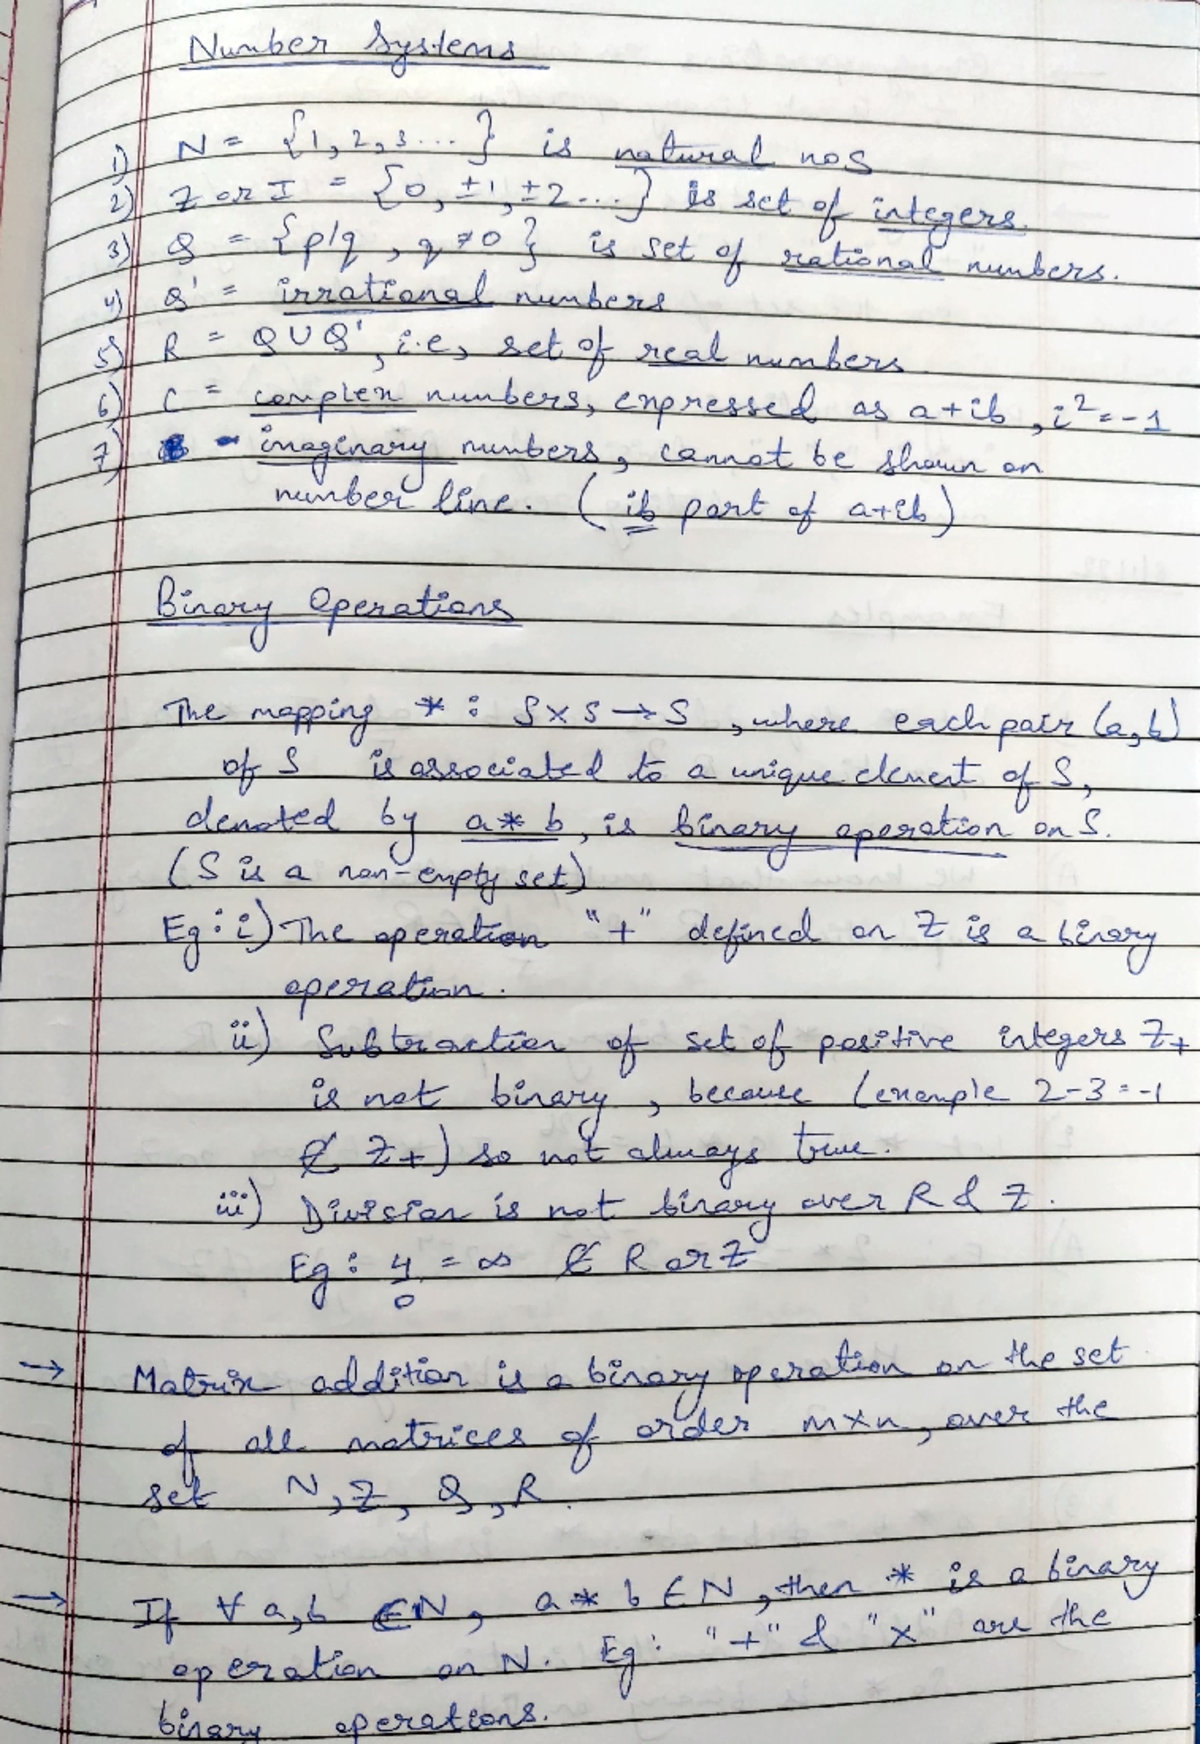 Number Systems
1) N = {1, 2, 3 ... } is natural nos
2) Z or I = {0, ±1, ±2 ... } is set of integers.
3) Q = {p/q , q ≠ 0 } is set of rational numbers.
4) Q' = irrational numbers
5) R = Q ∪ Q' , i.e, set of real numbers
6) C = complex numbers, expressed as a+ib , i² = -1
7) - imaginary numbers, cannot be shown on
number line. ( ib part of a+ib )
Binary Operations
The mapping * : S × S → S , where each pair (a, b)
of S is associated to a unique element of S,
denoted by a * b, is binary operation on S.
(S is a non-empty set)
Eg : i) The operation "+" defined on Z is a binary
operation.
ii) Subtraction of set of positive integers Z+
is not binary , because (example 2-3 = -1
∉ Z+) so not always true.
iii) Division is not binary over R & Z .
Eg : 4/0 = ∞ ∉ R or Z
→ Matrix addition is a binary operation on the set
of all matrices of order m×n, over the
set N, Z, Q, R .
→ If ∀ a, b ∈ N, a * b ∈ N , then * is a binary
operation on N. Eg : "+" & "×" are the
binary operations.